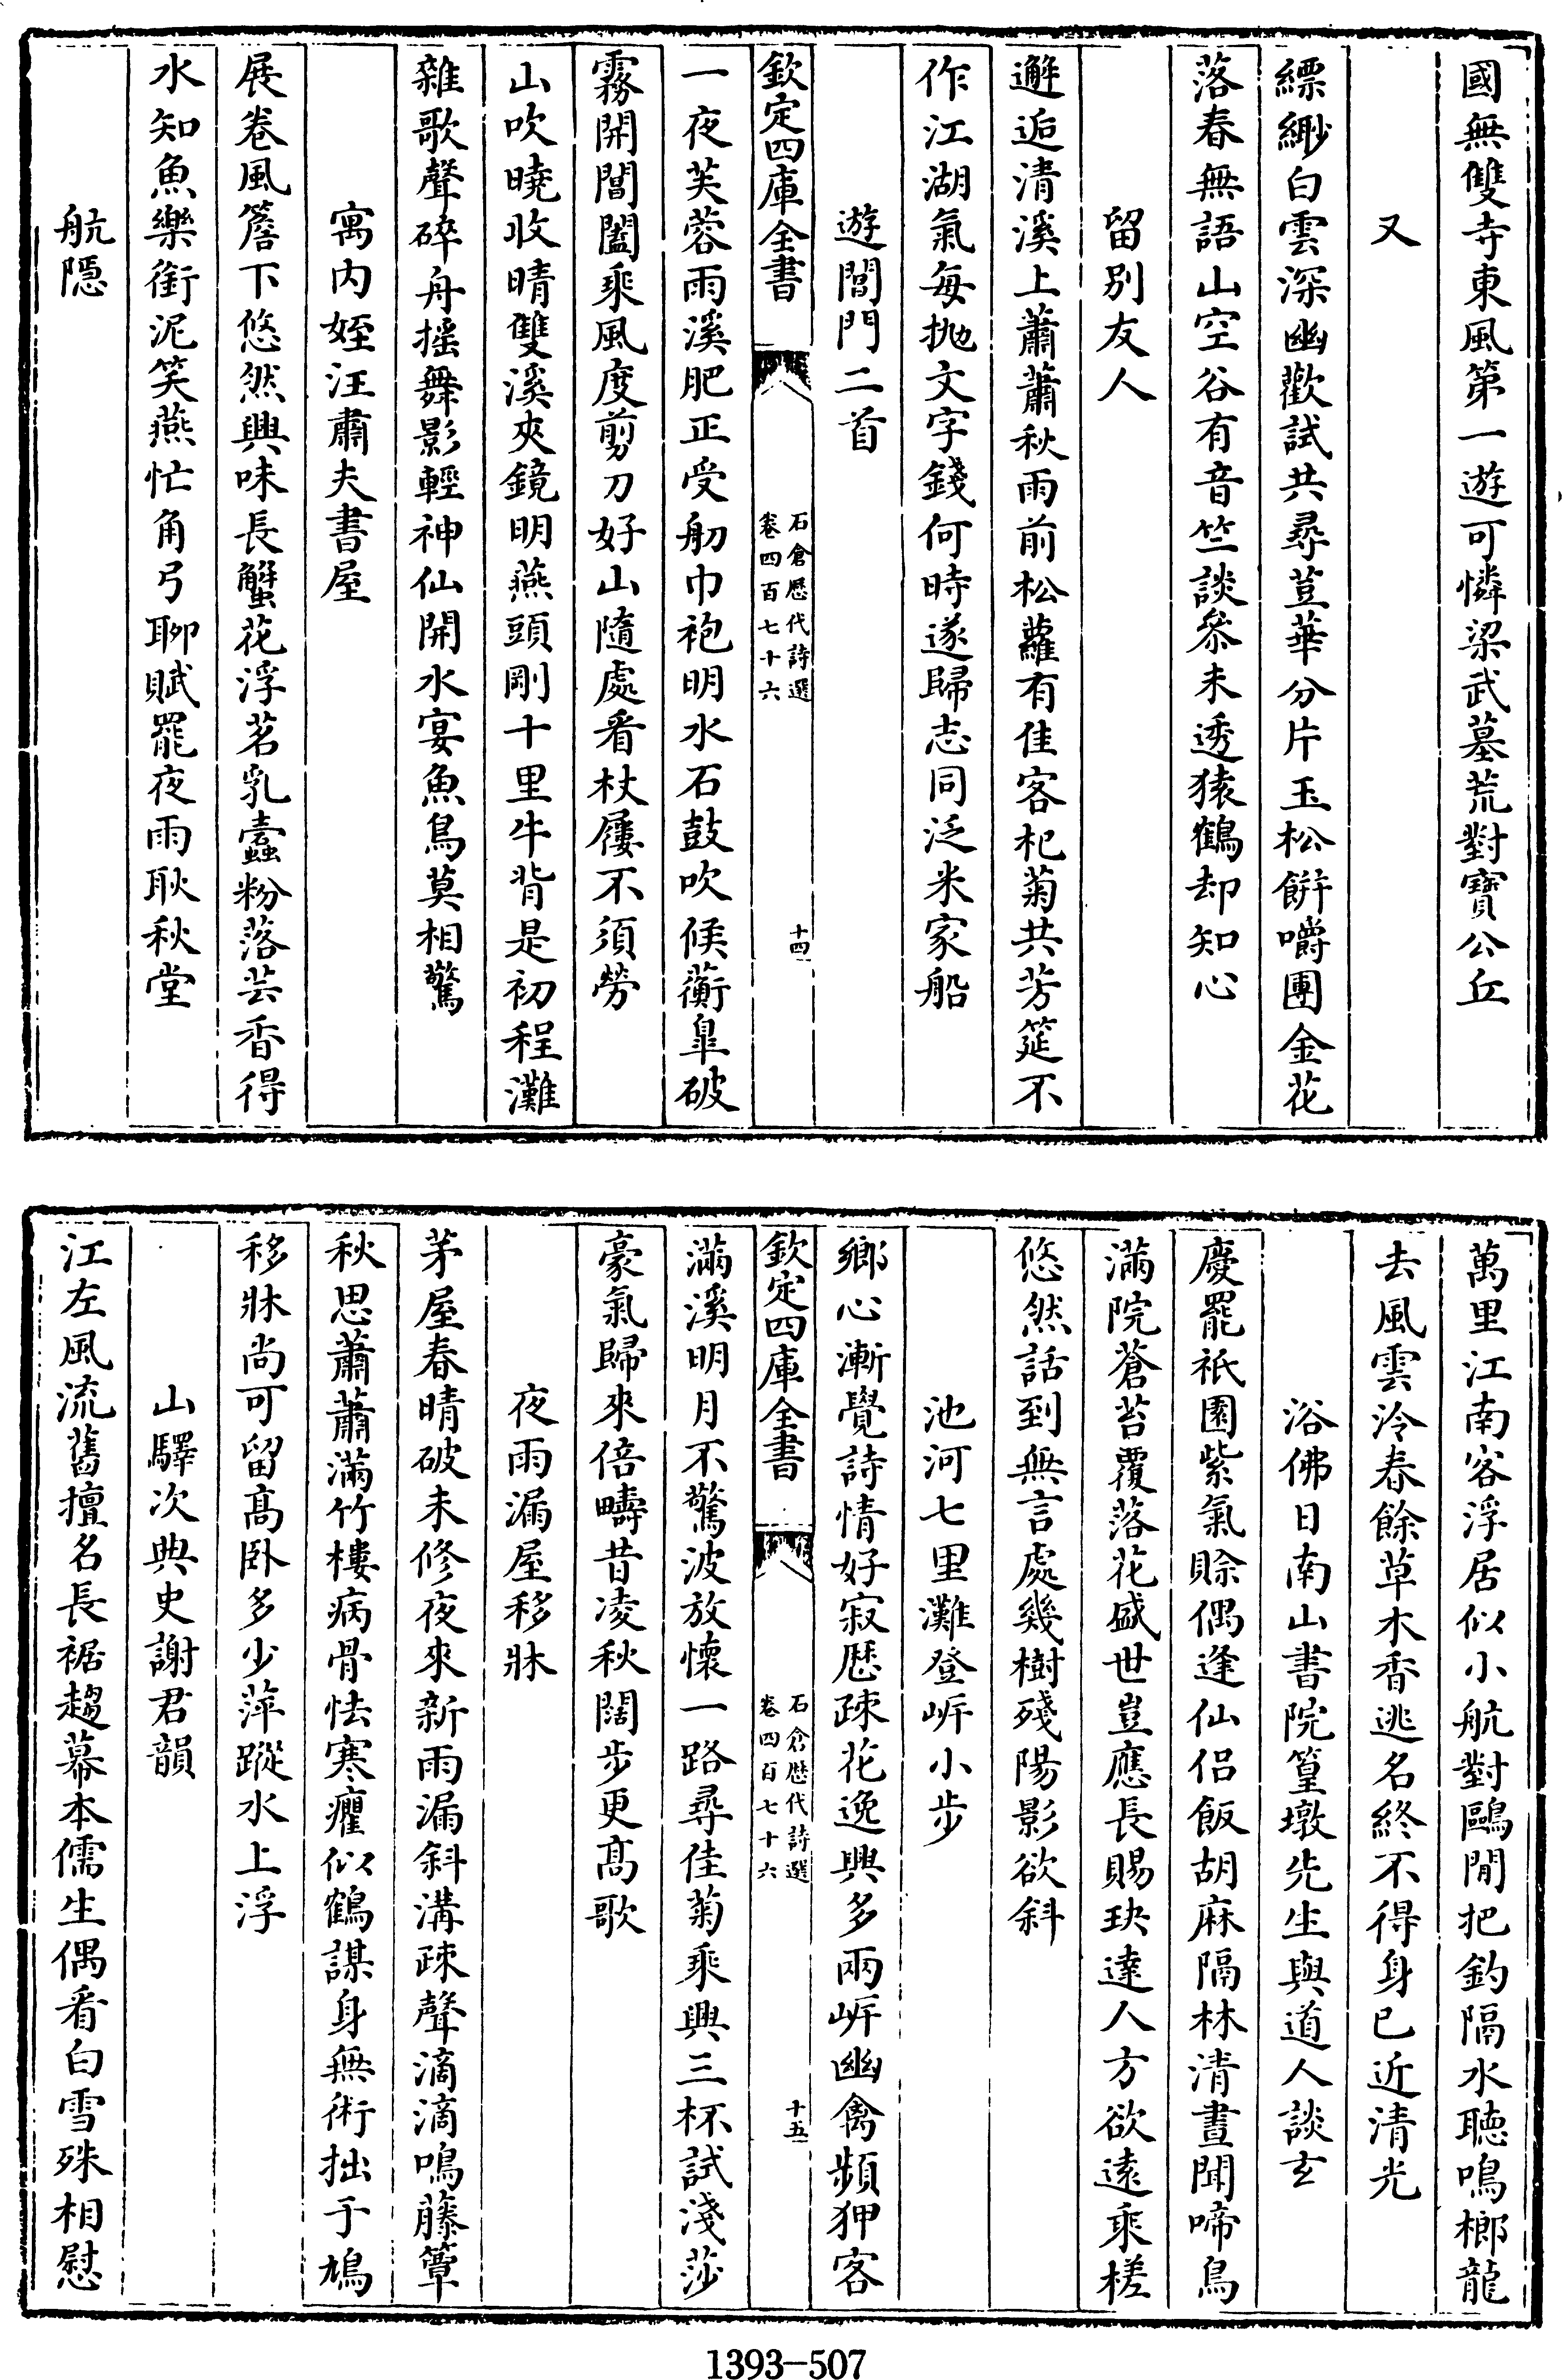 國無雙寺東風第一遊可憐梁武墓荒對寶公丘
又
縹緲白雲深幽歡試共尋荳華分片玉松餅嚼團金花
落春無語山空谷有音竺談參未透猿鶴却知心
留別友人
邂逅清溪上蕭蕭秋雨前松蘿有佳客杞菊共芳筵不
作江湖氣每拋文字錢何時遂歸志同泛米家船
遊閶門二首
欽定四庫全書
石倉歷代詩選
卷四百七十六
十四
一夜芙蓉雨溪肥正受舠巾袍明水石鼓吹候蘅臯破
霧開閶闔乘風度剪刀好山隨處看杖屨不須勞
山吹曉收晴雙溪夾鏡明燕頭剛十里牛背是初程灘
雜歌聲碎舟摇舞影輕神仙開水宴魚鳥莫相驚
寓内姪汪肅夫書屋
展卷風簷下悠然興味長蟹花浮茗乳蠹粉落芸香得
水知魚樂銜泥笑燕忙角弓聊賦罷夜雨耿秋堂
航隱
萬里江南客浮居似小航對鷗閒把釣隔水聽鳴榔龍
去風雲冷春餘草木香逃名終不得身已近清光
浴佛日南山書院篁墩先生與道人談玄
慶罷祇園紫氣賒偶逢仙侣飯胡麻隔林清晝聞啼鳥
滿院蒼苔覆落花盛世豈應長賜玦達人方欲遠乘槎
悠然話到無言處幾樹殘陽影欲斜
池河七里灘登岸小步
鄉心漸覺詩情好寂歷疎花逸興多兩岸幽禽頻狎客
欽定四庫全書
石倉歷代詩選
卷四百七十六
十五
滿溪明月不驚波放懷一路尋佳菊乘興三杯試淺莎
豪氣歸來倍疇昔凌秋闊步更高歌
夜雨漏屋移牀
茅屋春晴破未修夜來新雨漏斜溝疎聲滴滴鳴藤簟
秋思蕭蕭滿竹樓病骨怯寒癯似鶴謀身無術拙于鳩
移牀尚可留高卧多少萍蹤水上浮
山驛次典史謝君韻
江左風流舊擅名長裾趨幕本儒生偶看白雪殊相慰
1393-507